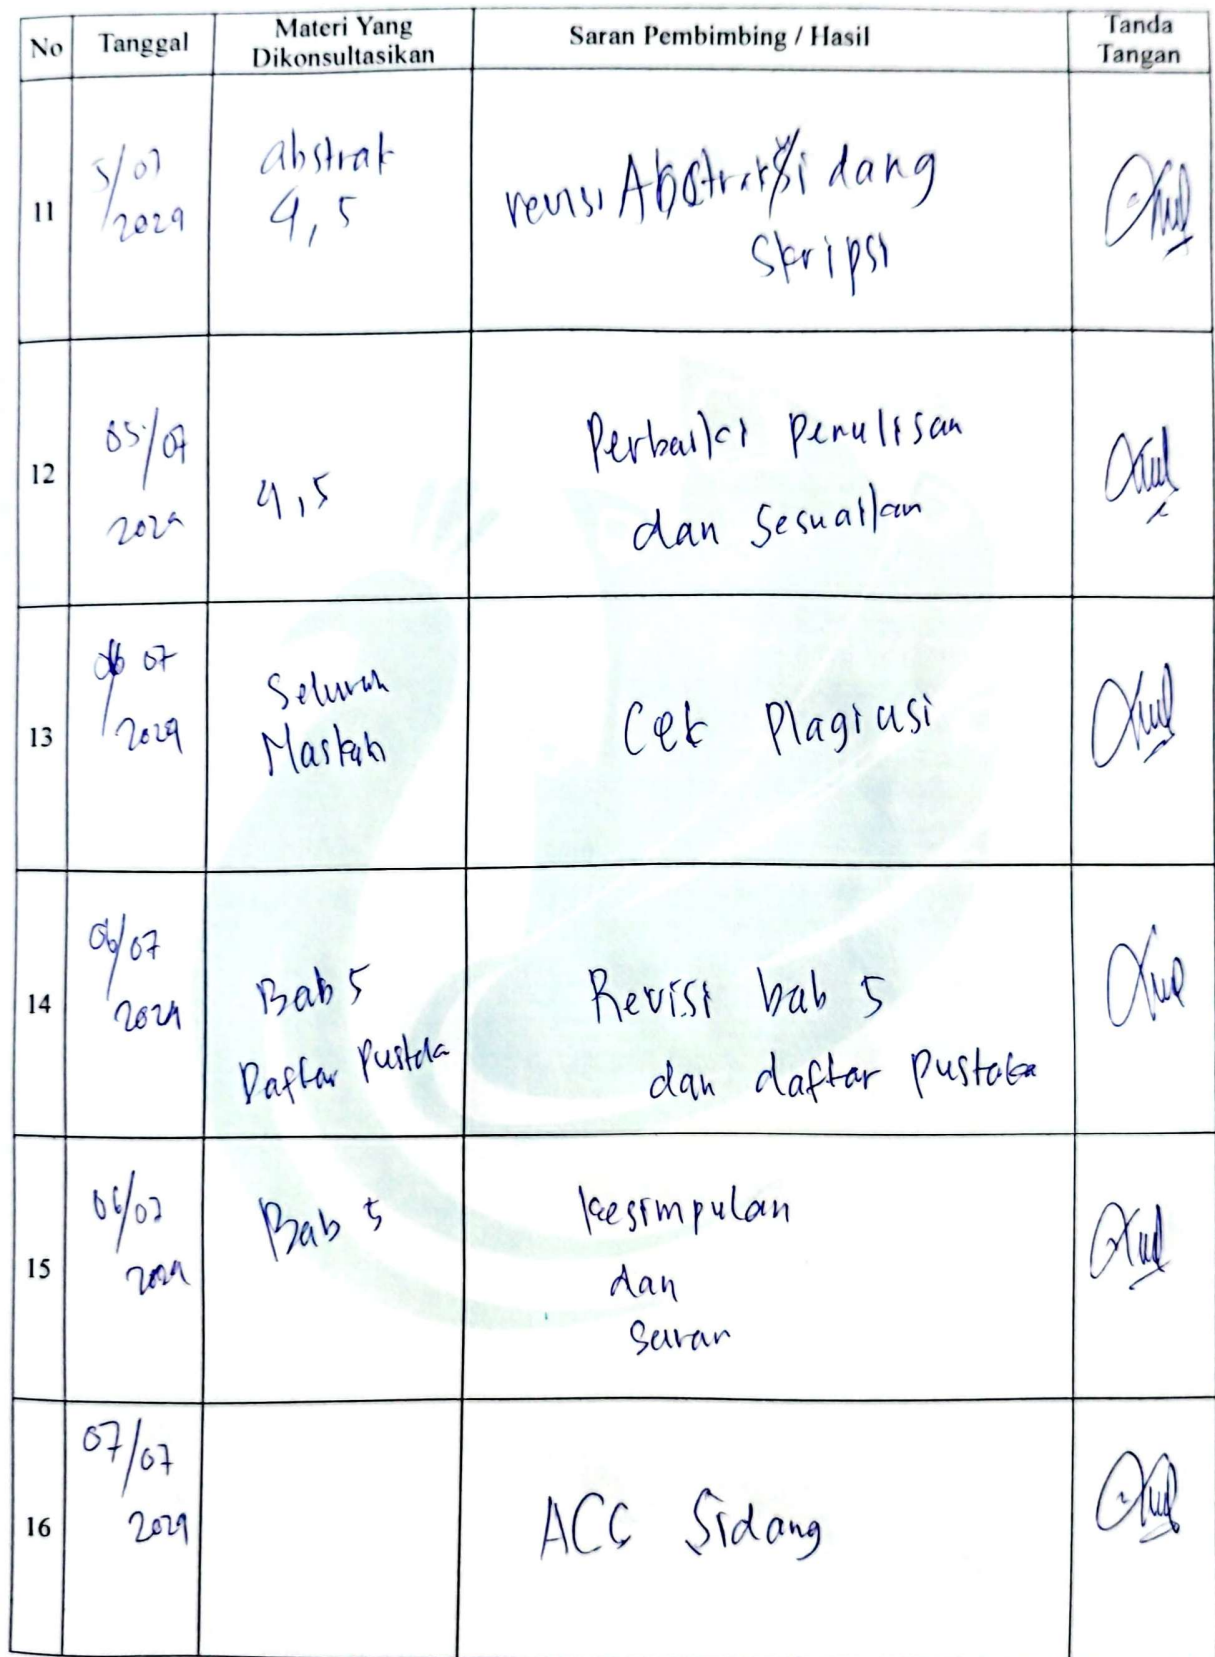 No Tanggal Materi Yang Dikonsultasikan Saran Pembimbing / Hasil Tanda Tangan
11
5/07
2024
abstrak
4, 5
revisi Abstrak Sidang
Skripsi
12
05/07
2024
4,5
Perbaiki penulisan
dan Sesuaikan
13
06 07
2024
Seluruh
Maskah
Cek Plagiasi
14
06/07
2024
Bab 5
Daftar Pustaka
Revisi bab 5
dan daftar pustaka
15
06/07
2024
Bab 5
kesimpulan
dan
Saran
16
07/07
2024
ACC Sidang